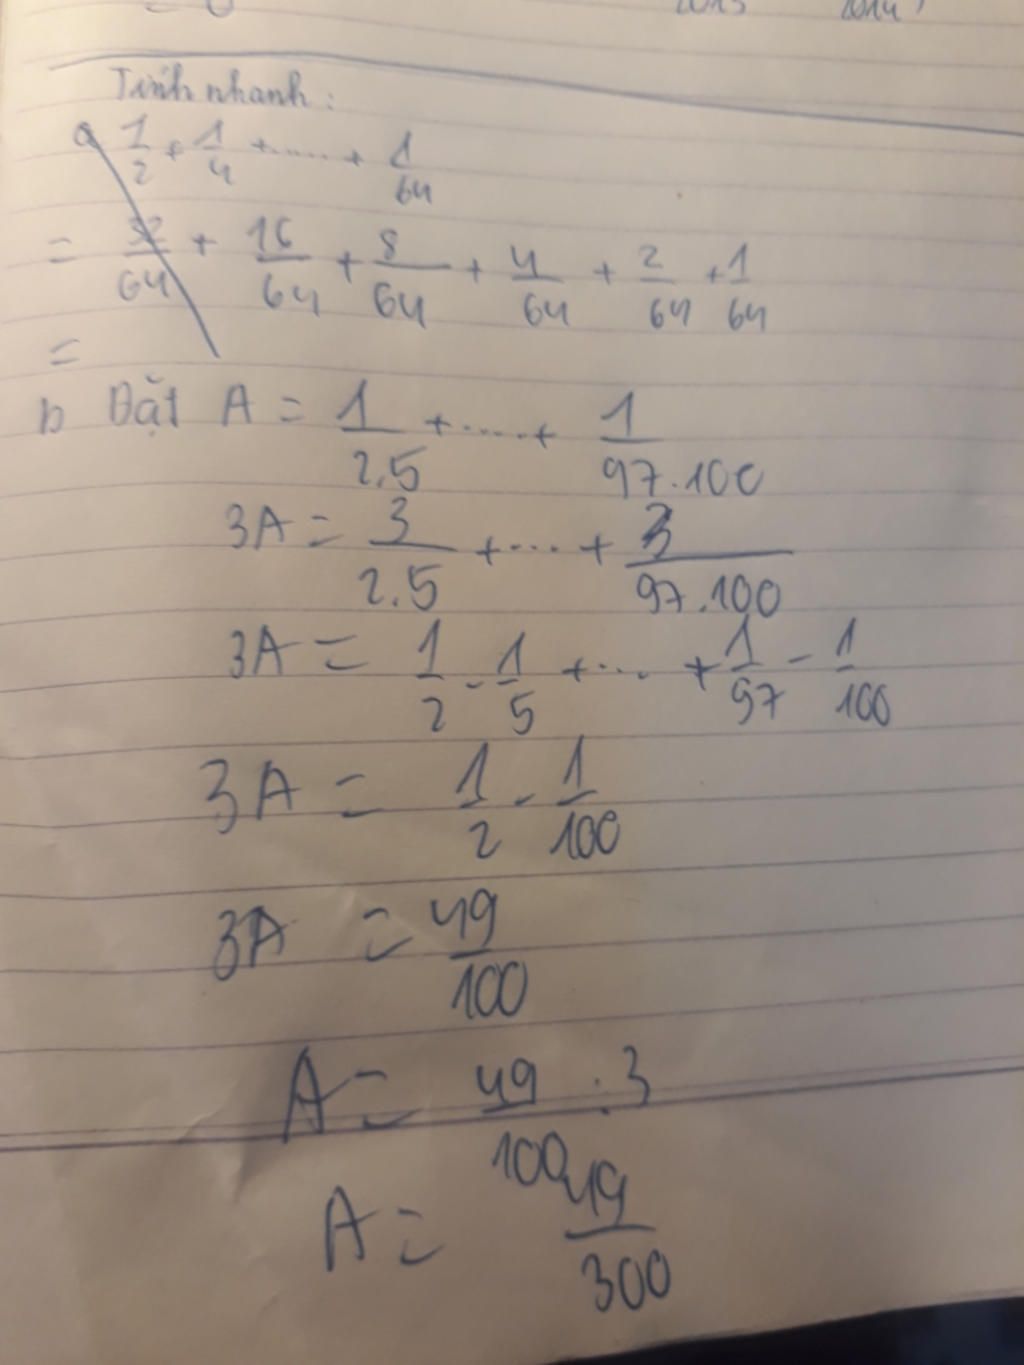 2013 2014
Tính nhanh:
a 1/2 + 1/4 + ..... + 1/64
= 32/64 + 16/64 + 8/64 + 4/64 + 2/64 + 1/64
=
b Đặt A = 1/2.5 + ..... + 1/97.100
3A = 3/2.5 + .... + 3/97.100
3A = 1/2 - 1/5 + ... + 1/97 - 1/100
3A = 1/2 - 1/100
3A = 49/100
A = 49/100 : 3
A = 49/300